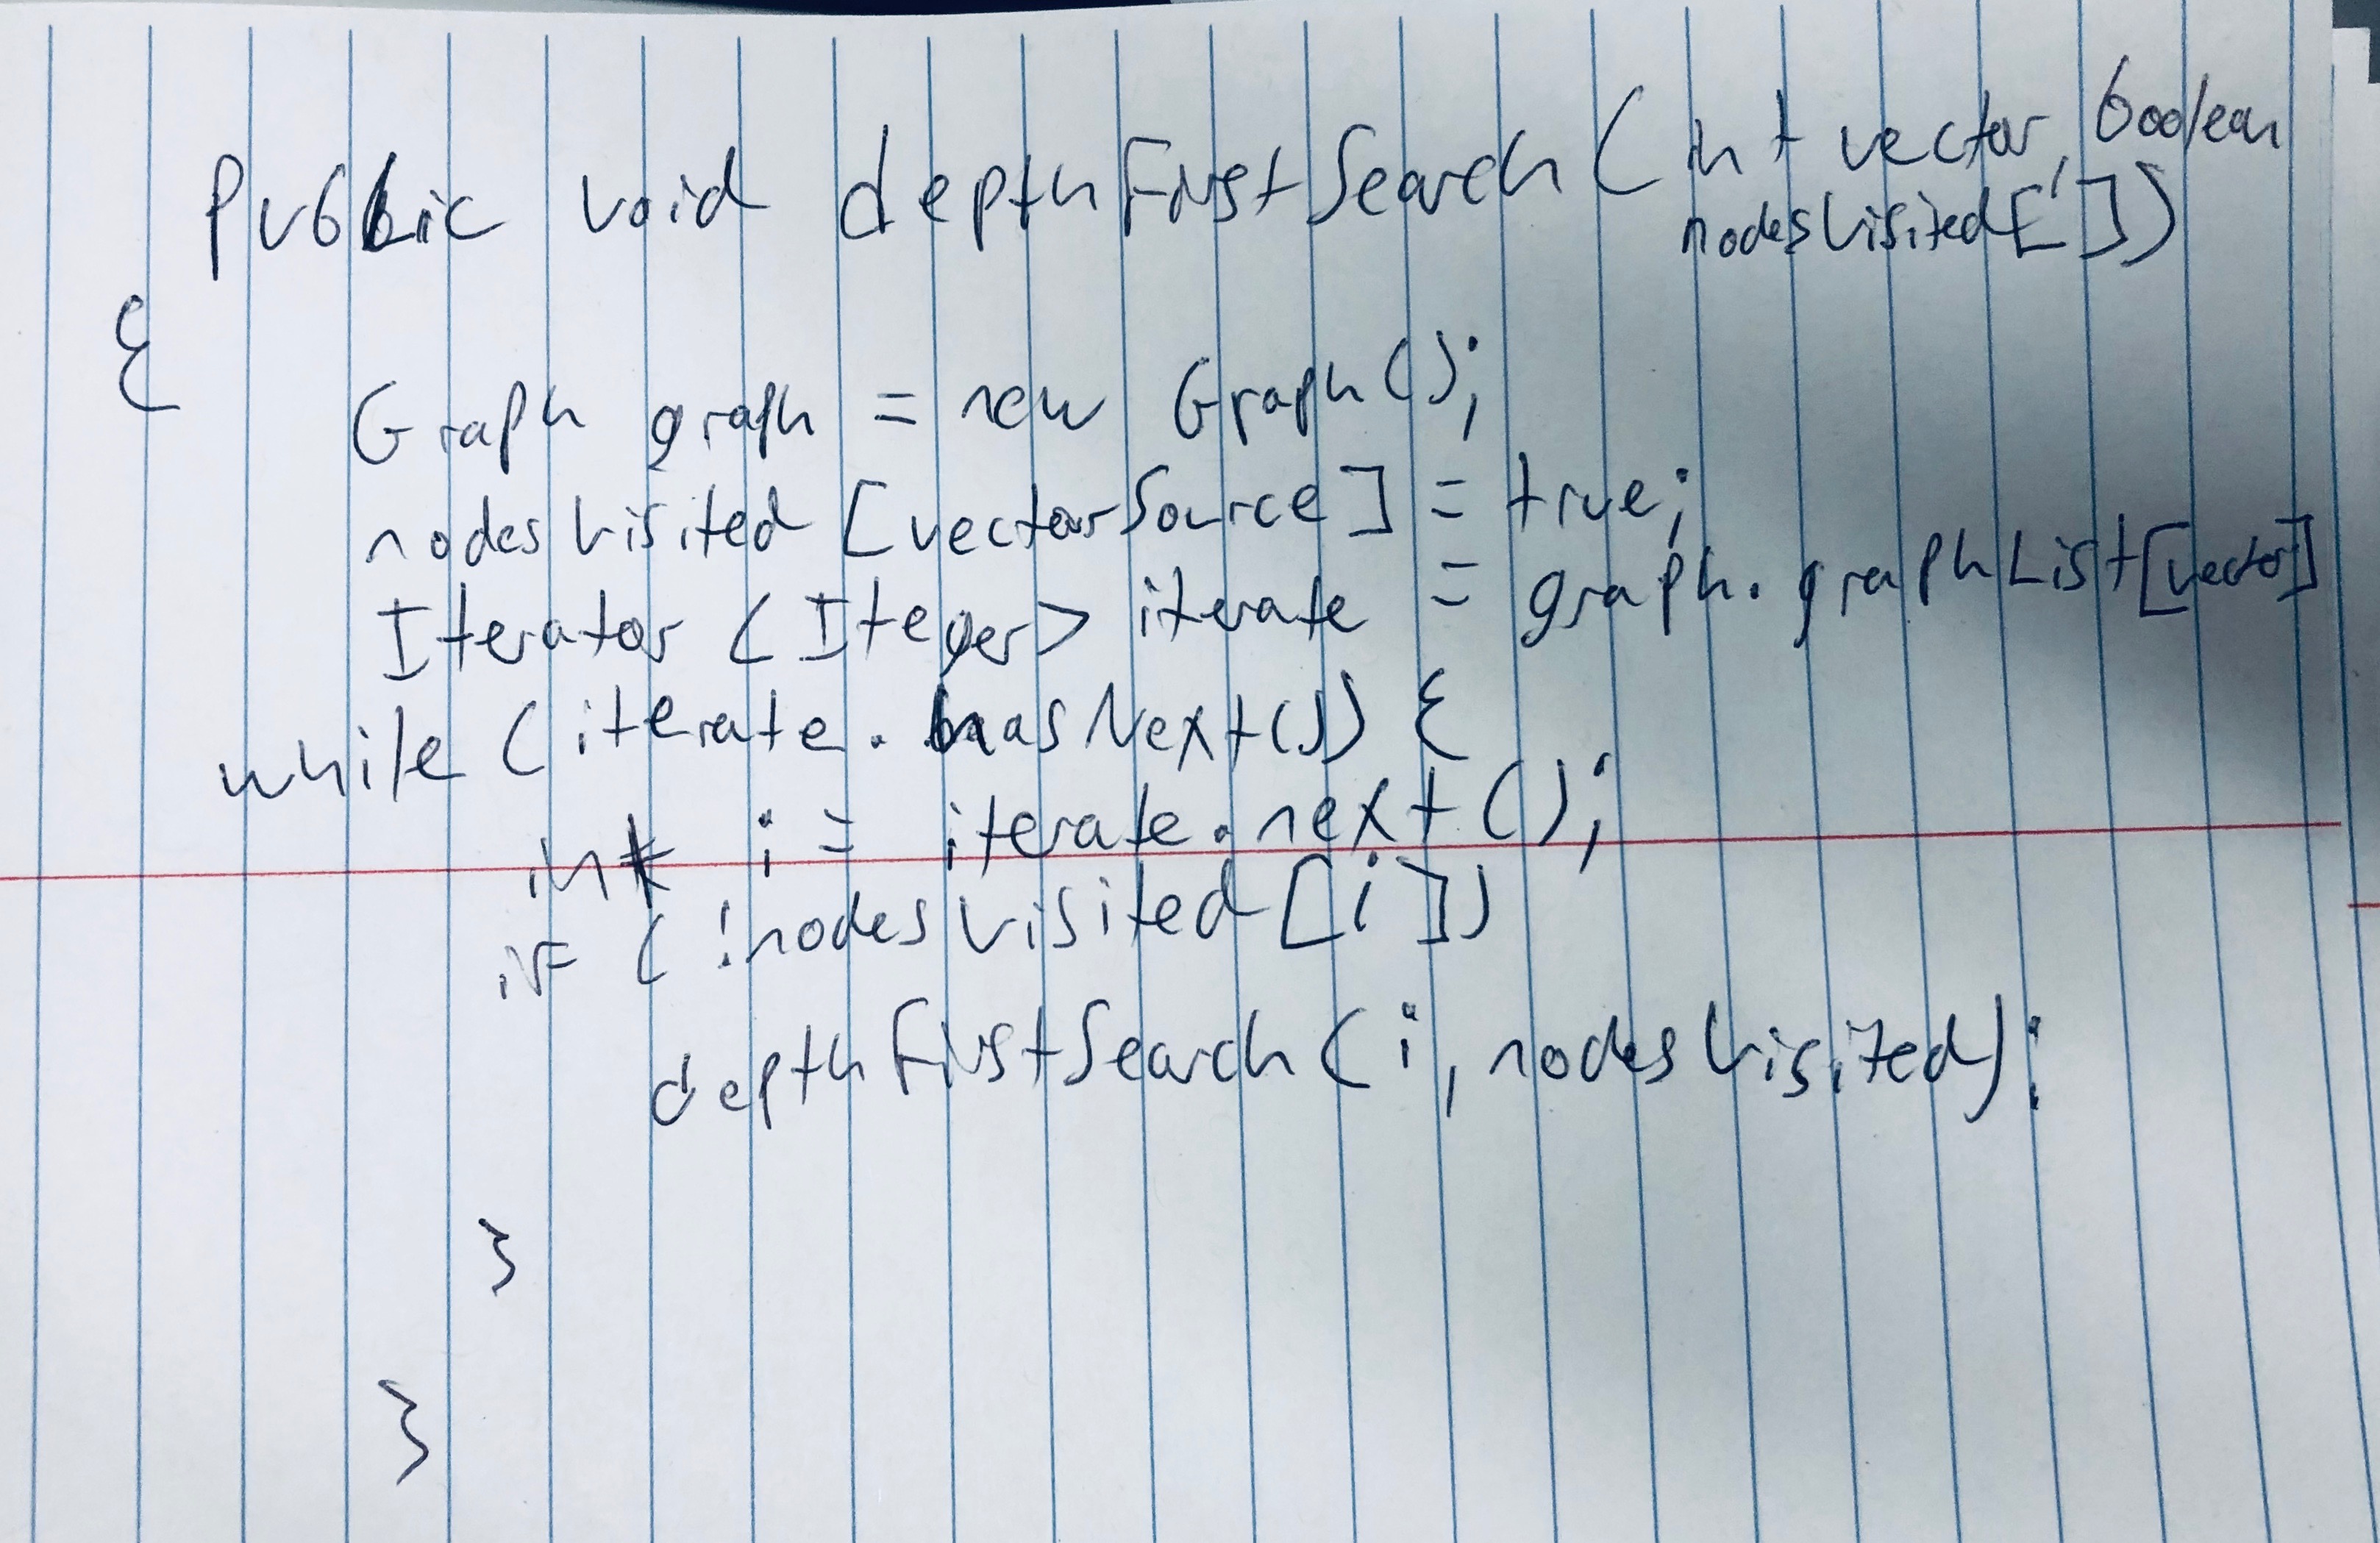 public void depthFirstSearch(int vector, boolean
nodesVisited[])
{
Graph graph = new Graph();
nodesVisited[vectorSource] = true;
Iterator <Iteger> iterate = graph.graphList[vector]
while (iterate.hasNext()) {
int i = iterate.next();
if (!nodesVisited[i])
depthFirstSearch(i, nodesVisited);
}
}